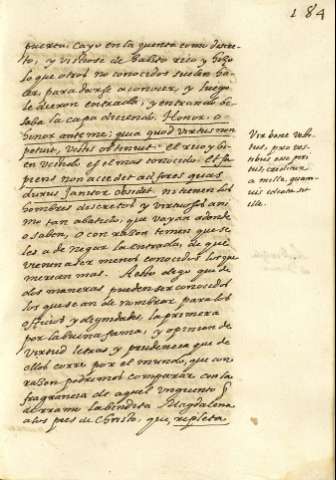 184
puerta; cayo en la quenta como discre-
to, y vistiose de habito rico y hizo
lo que otros no conocidos suelen ha-
cer, para darse a conocer, y luego
le dieron entrada; y entrando be-
saba la capa diciendo. Honor, o
honor ante me; quia quod virtus non
potuit, vestis obtinuit. El rico y bien
vestido es el mas conocido. Et sa-
piens non accedet ad fores quas
durus Janitor obsidet. ni tienen los
hombres discretos y virtuosos ani-
mo tan abatido, que vayan adonde
o saben, o con razon temen que se
les a de negar la entrada, de que
vienen a ser menos conocidos los que
merecen mas. Restro digo que de
dos maneras pueden ser conocidos
los que se an de nombrar para los
oficios y dignidades. la primera
por la buena fama, y opinion de
virtud letras y prudencia que de
ellos corre por el mundo, que con
razon podremos comparar con la
fragrancia de aquel unguento q
derramo la bendita Magdalena
a los pies de Christo, que, repleta
Vir bene vesti-
tus, pro ves-
tibus esse peri-
tus, creditur
a mille, quam-
vis idiota sit
ille.